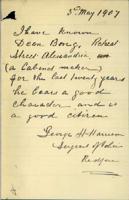 3rd May 1907
I have known
Deen Bong, Retreat
Street Alexandria,
(a Cabinet maker)
for the last twenty years
he bears a good
character and is
a good citizen
George H Harrison
Sergent of Police
Redfern